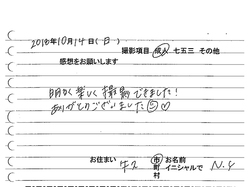 2018年10月14日(日)
撮影項目 成人 七五三 その他
感想をお願いします
明るく楽しく撮影できました!
ありがとうございました☺♡
お住まい 市町村 お名前 イニシャルで N.Y